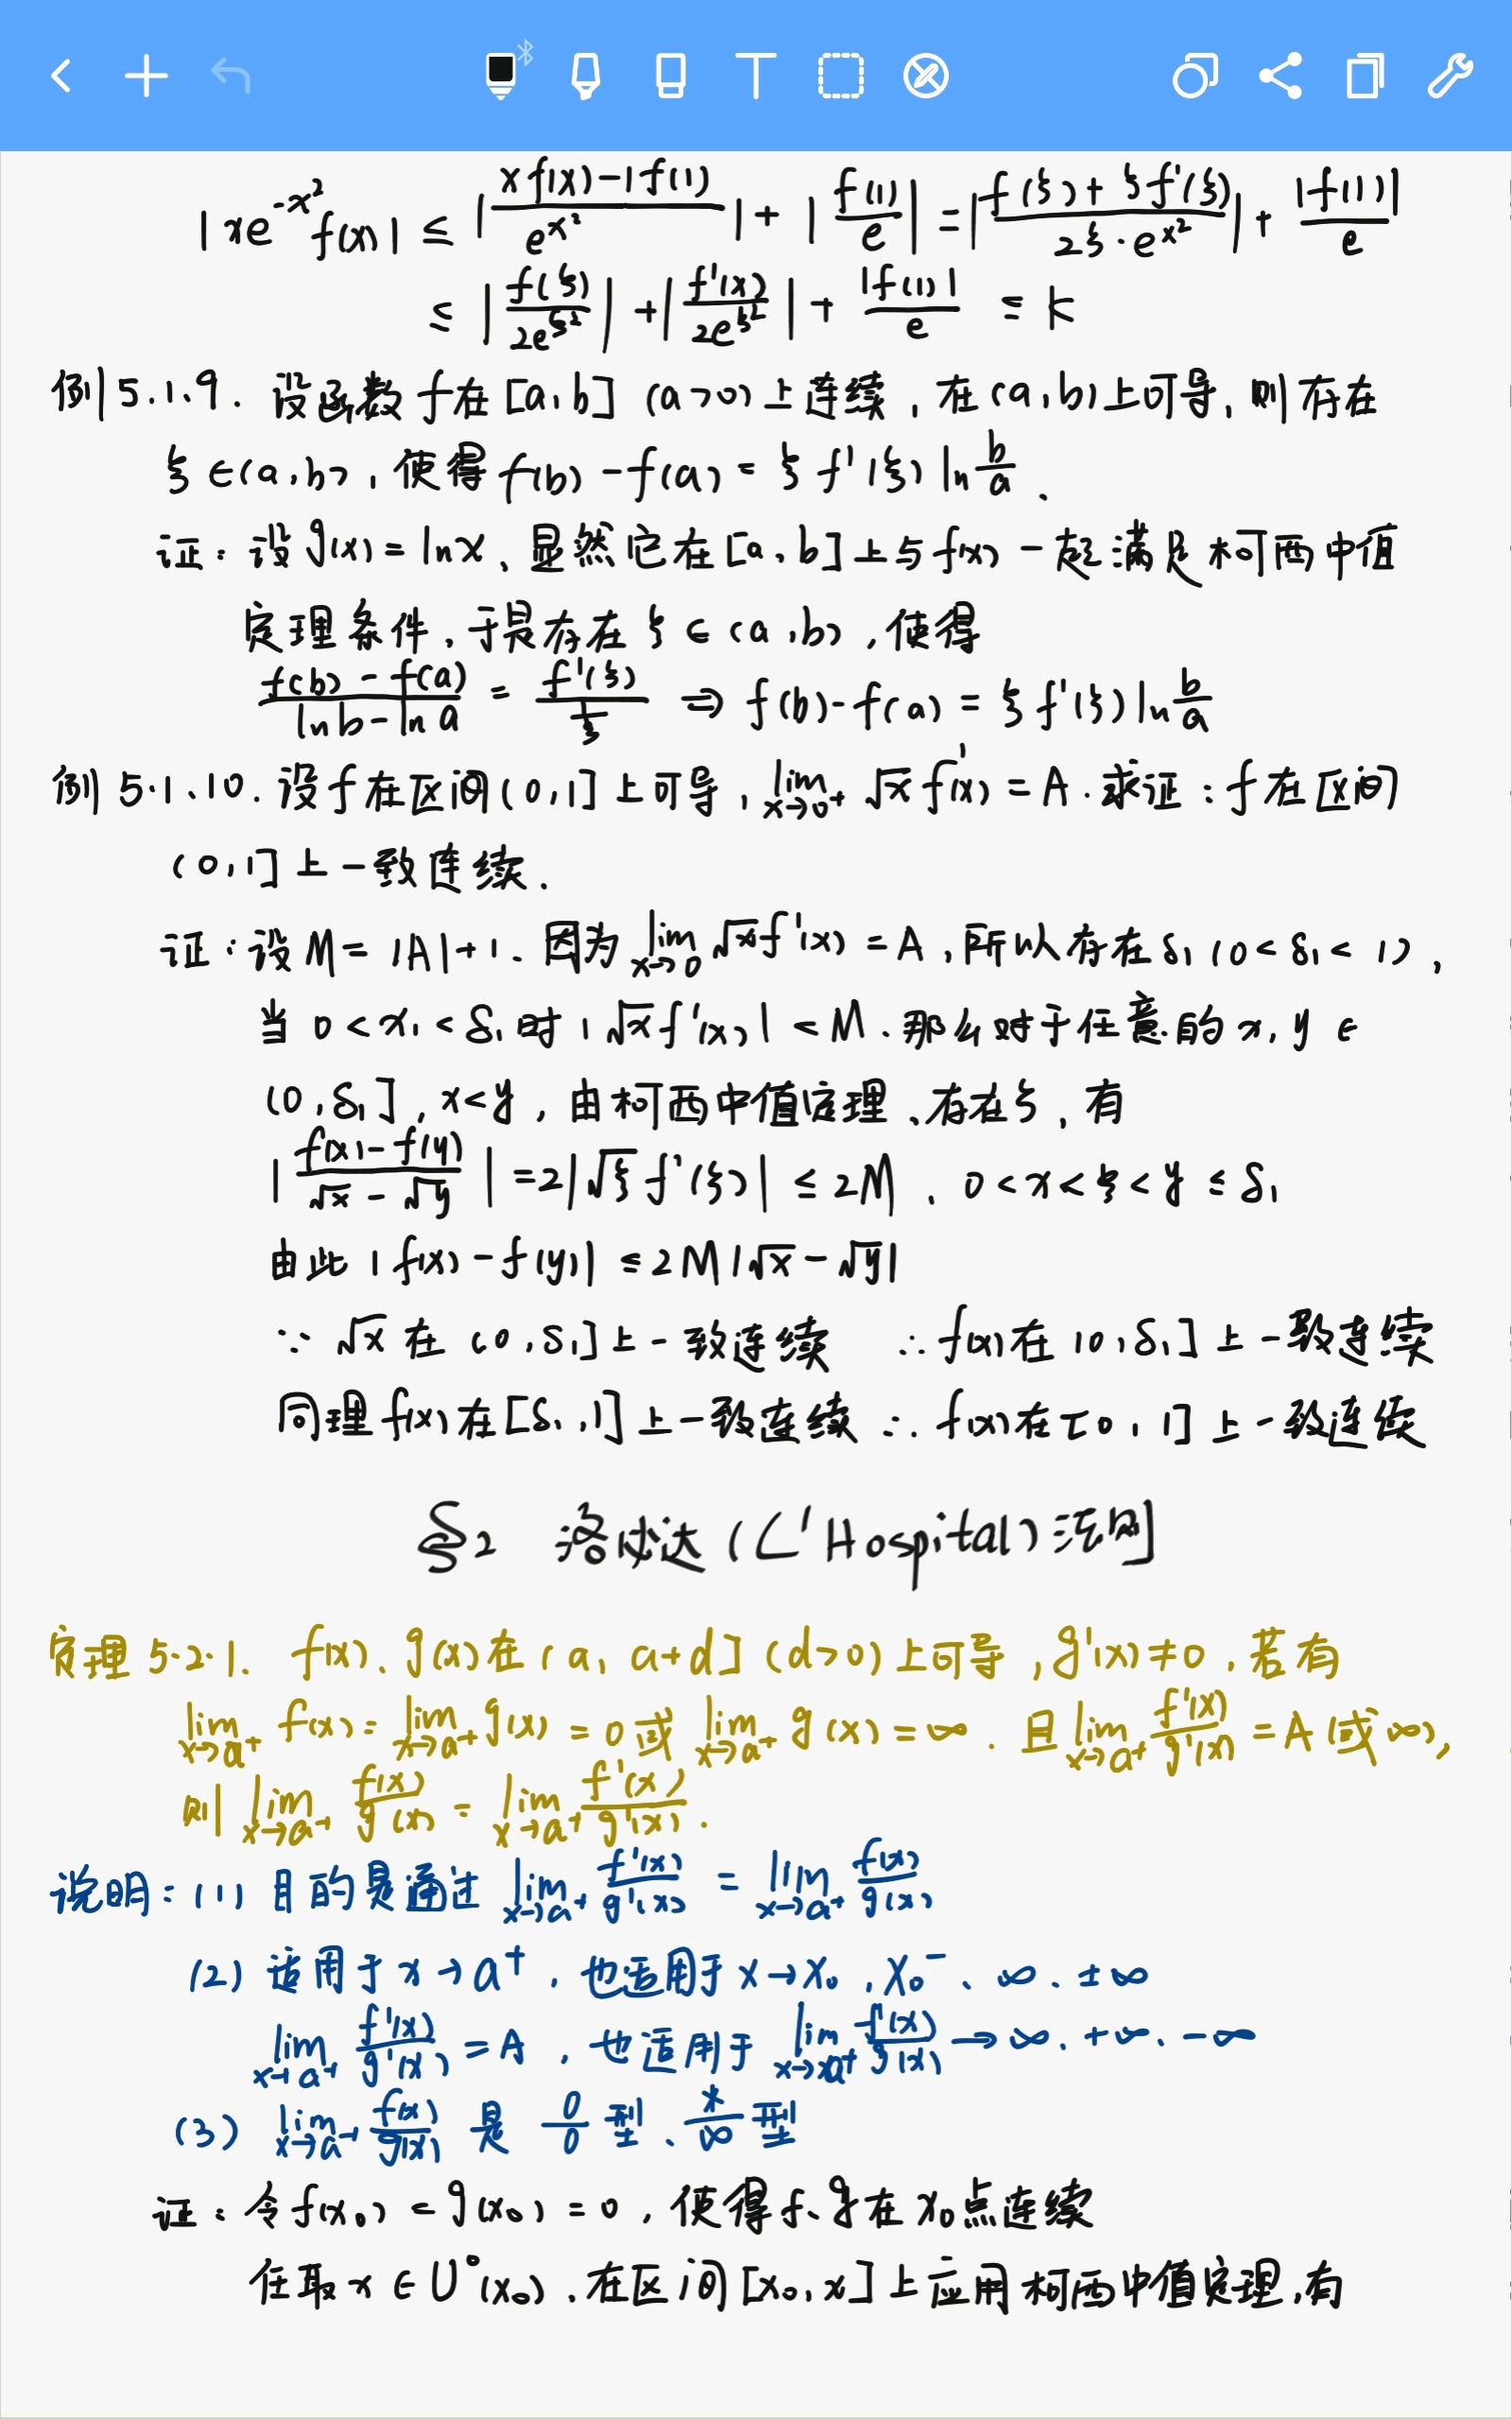 |xe^{-x²}f(x)| ≤ |(xf(x)-1f(1))/e^{x²}| + |f(1)/e| = |(f(ξ)+ξf'(ξ))/(2ξ·e^{x²})| + |f(1)|/e
≤ |f(ξ)/(2e^{ξ²})| + |f'(x)/(2e^{ξ²})| + |f(1)|/e = K
例5.1.9. 设函数f在[a,b](a>0)上连续,在(a,b)上可导,则存在
ξ∈(a,b),使得f(b)-f(a)=ξf'(ξ)ln b/a.
证:设g(x)=lnx、显然它在[a,b]上与f(x)一起满足柯西中值
定理条件,于是存在ξ∈(a,b),使得
(f(b)-f(a))/(lnb-lna) = f'(ξ)/(1/ξ) ⇒ f(b)-f(a)=ξf'(ξ)ln b/a
例5.1.10.设f在区间(0,1]上可导,lim_{x→0+} √x f'(x)=A.求证:f在区间
(0,1]上一致连续.
证:设M=|A|+1. 因为lim_{x→0}√xf'(x)=A,所以存在δ₁(0<δ₁<1),
当0<x₁<δ₁时|√xf'(x)|<M.那么对于任意的x,y∈
(0,δ₁],x<y,由柯西中值定理、存在ξ,有
|(f(x)-f(y))/(√x-√y)|=2|√ξf'(ξ)|≤2M、0<x<ξ<y≤δ₁
由此|f(x)-f(y)|≤2M|√x-√y|
∵√x在(0,δ₁]上一致连续 ∴f(x)在(0,δ₁]上一致连续
同理f(x)在[δ₁,1]上一致连续∴f(x)在[0,1]上一致连续
§2 洛必达(L'Hospital)法则
定理5.2.1. f(x)、g(x)在(a,a+d](d>0)上可导,g'(x)≠0,若有
lim_{x→a+}f(x)=lim_{x→a+}g(x)=0或lim_{x→a+}g(x)=∞.且lim_{x→a+}f'(x)/g'(x)=A(或∞),
则lim_{x→a+}f(x)/g(x)=lim_{x→a+}f'(x)/g'(x).
说明:(1)目的是通过lim_{x→a+}f'(x)/g'(x)=lim_{x→a+}f(x)/g(x)
(2)适用于x→a⁺,也适用于x→x₀,x₀⁻、∞、±∞
lim_{x→a+}f'(x)/g'(x)=A,也适用于lim_{x→a+}f'(x)/g'(x)→∞、+∞、-∞
(3)lim_{x→a+}f(x)/g(x)是0/0型、*/∞型
证:令f(x₀)=g(x₀)=0,使得f、g在x₀点连续
任取x∈U°(x₀)、在区间[x₀,x]上应用柯西中值定理,有